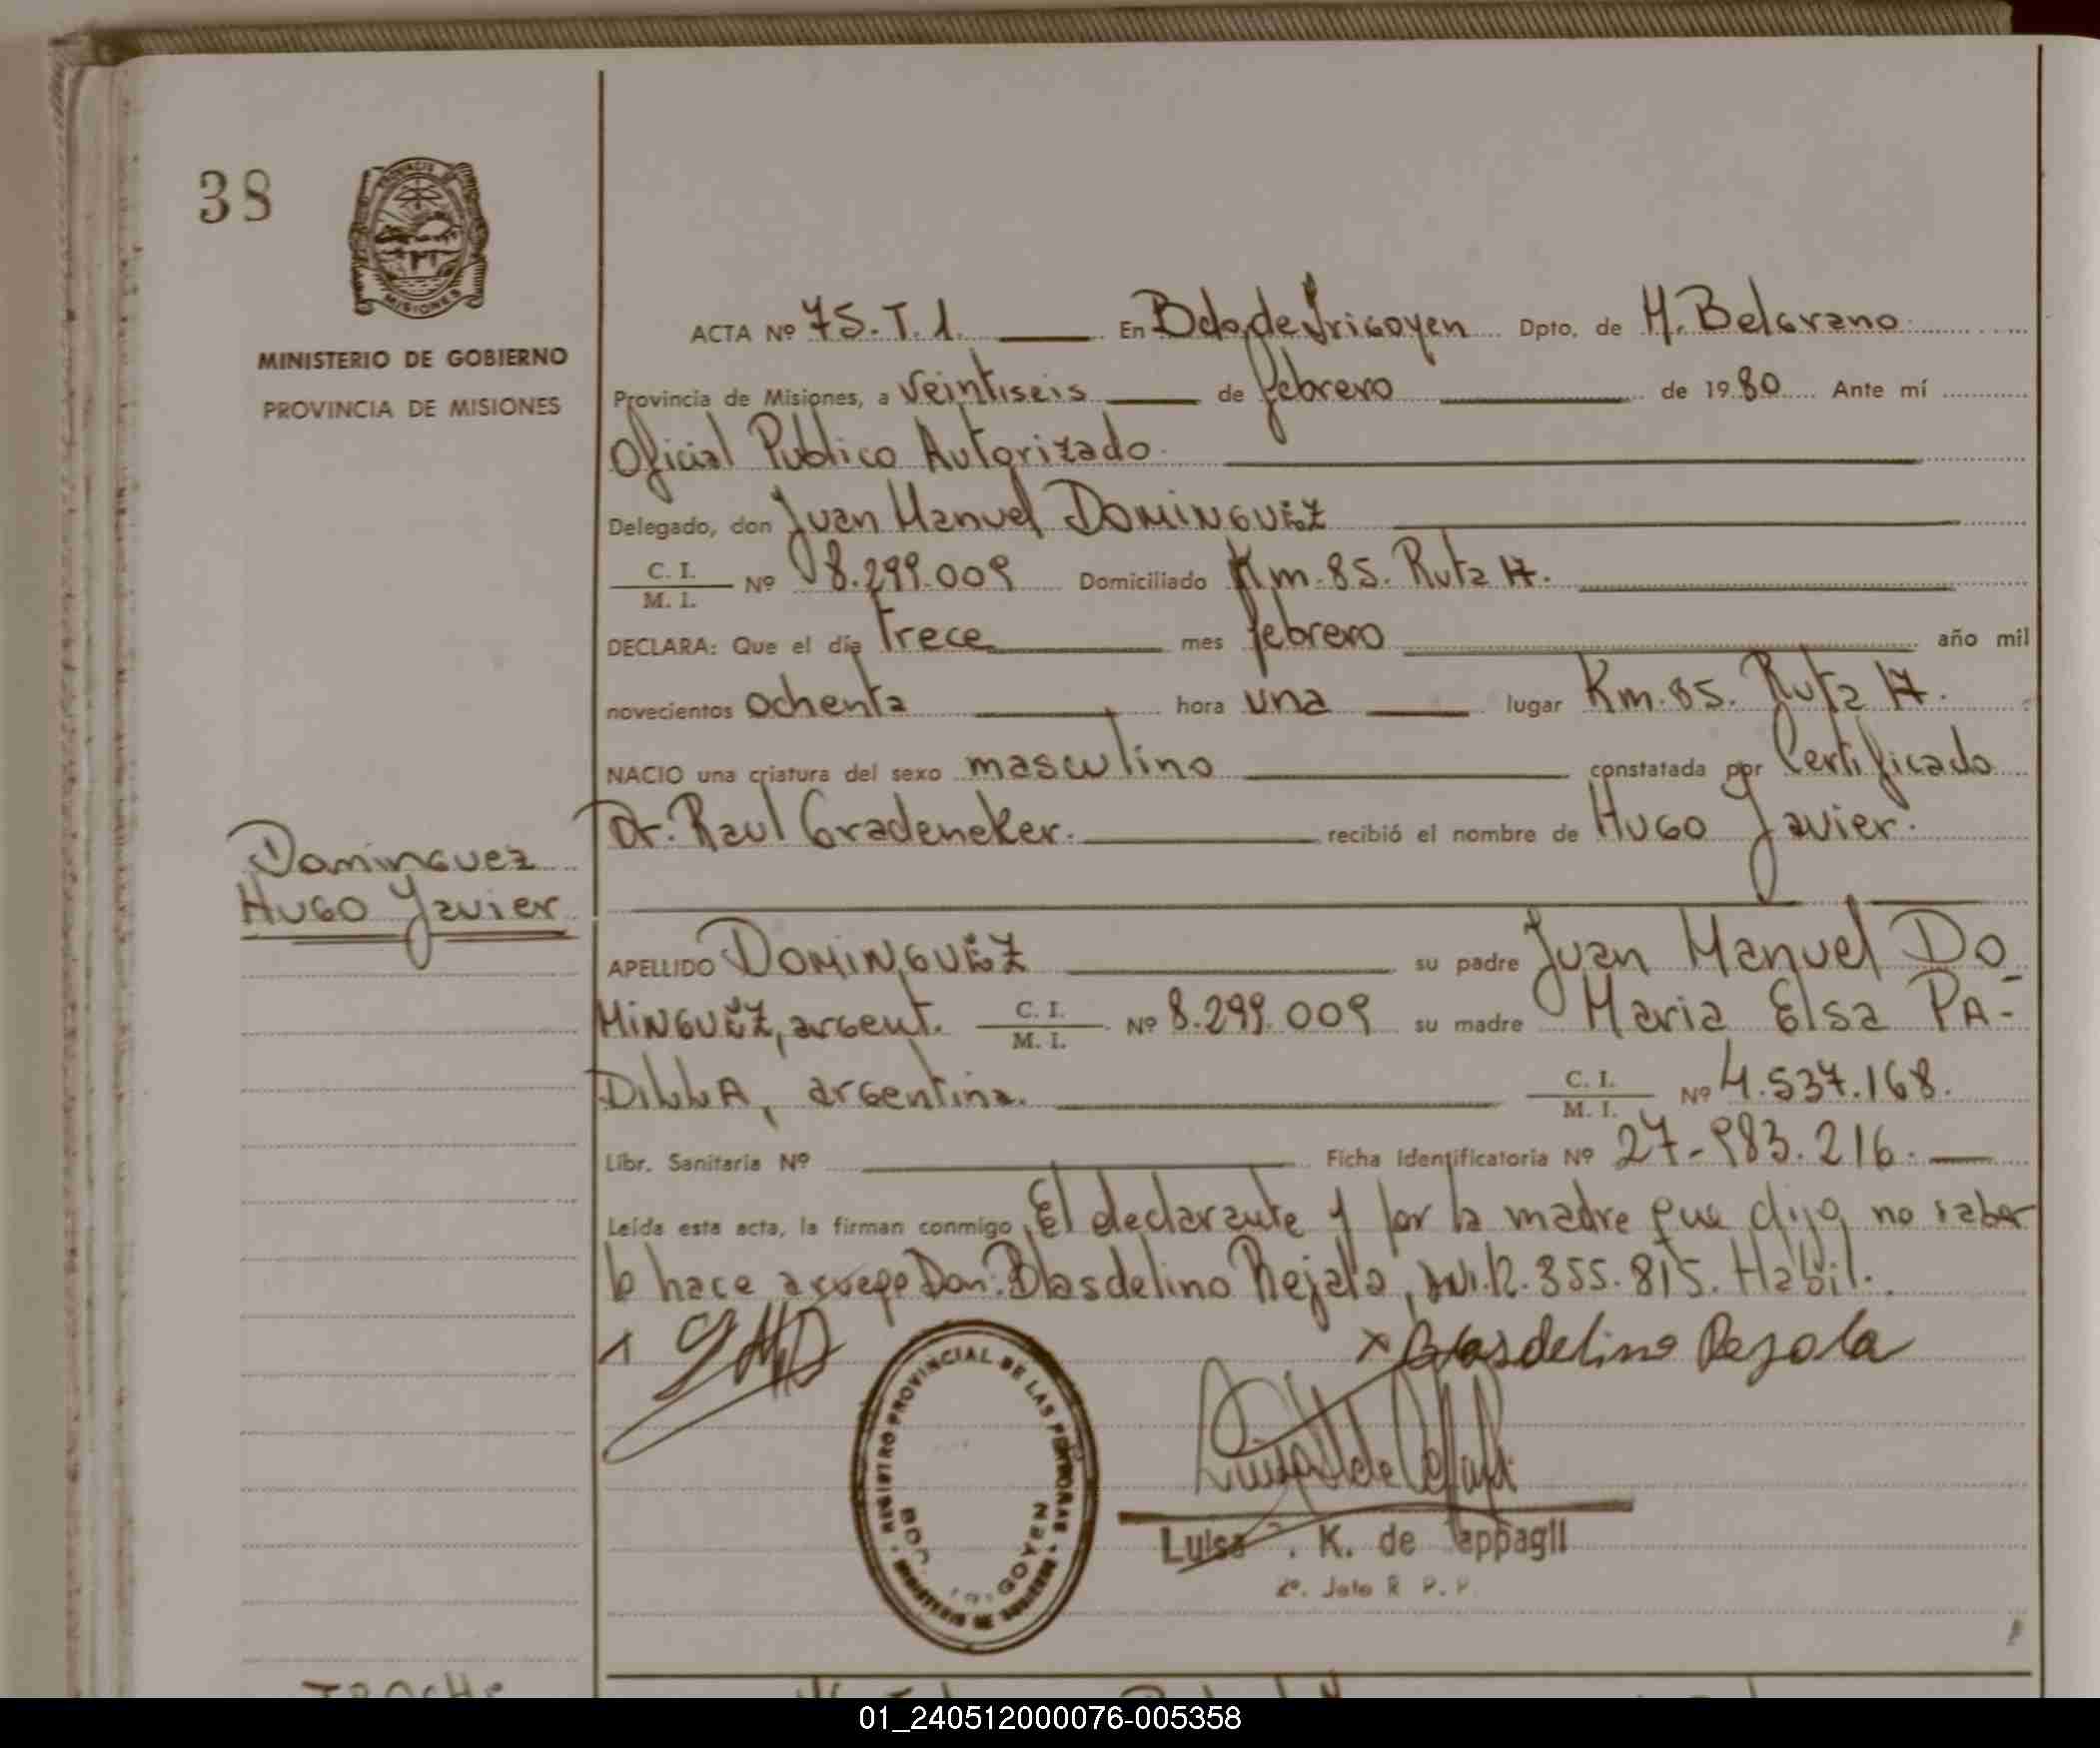 38
PROVINCIA DE
MISIONES
MINISTERIO DE GOBIERNO
PROVINCIA DE MISIONES
ACTA Nº 75. T. 1. En Bdo. de Irigoyen Dpto. de H. Belgrano
Provincia de Misiones, a veintiseis de febrero de 1980 Ante mí
Oficial Publico Autorizado.
Delegado, don Juan Manuel DOMINGUEZ
C. I. / M. I. Nº 8.299.009 Domiciliado Km. 85. Ruta 17.
DECLARA: Que el día Trece mes febrero año mil
novecientos ochenta hora una lugar Km. 85. Ruta 17.
NACIO una criatura del sexo masculino constatada por Certificado
Dr. Raul Gradeneker. recibió el nombre de Hugo Javier.
Dominguez
Hugo Javier
APELLIDO DOMINGUEZ su padre Juan Manuel DO-
MINGUEZ, argent. C. I. / M. I. Nº 8.299.009 su madre Maria Elsa PA-
DILLA, argentina. C. I. / M. I. Nº 4.537.168.
Libr. Sanitaria Nº Ficha Identificatoria Nº 27-983.216.
Leída esta acta, la firman conmigo El declarante y por la madre que dijo no saber
lo hace a ruego Don: Blasdelino Rejala, 12.355.815. Habil.
x Blasdelino Rejala
REGISTRO PROVINCIAL DE LAS PERSONAS
BDO. IRIGOYEN
Luisa K. de
2º. Jefe R. P. P.
01_240512000076-005358